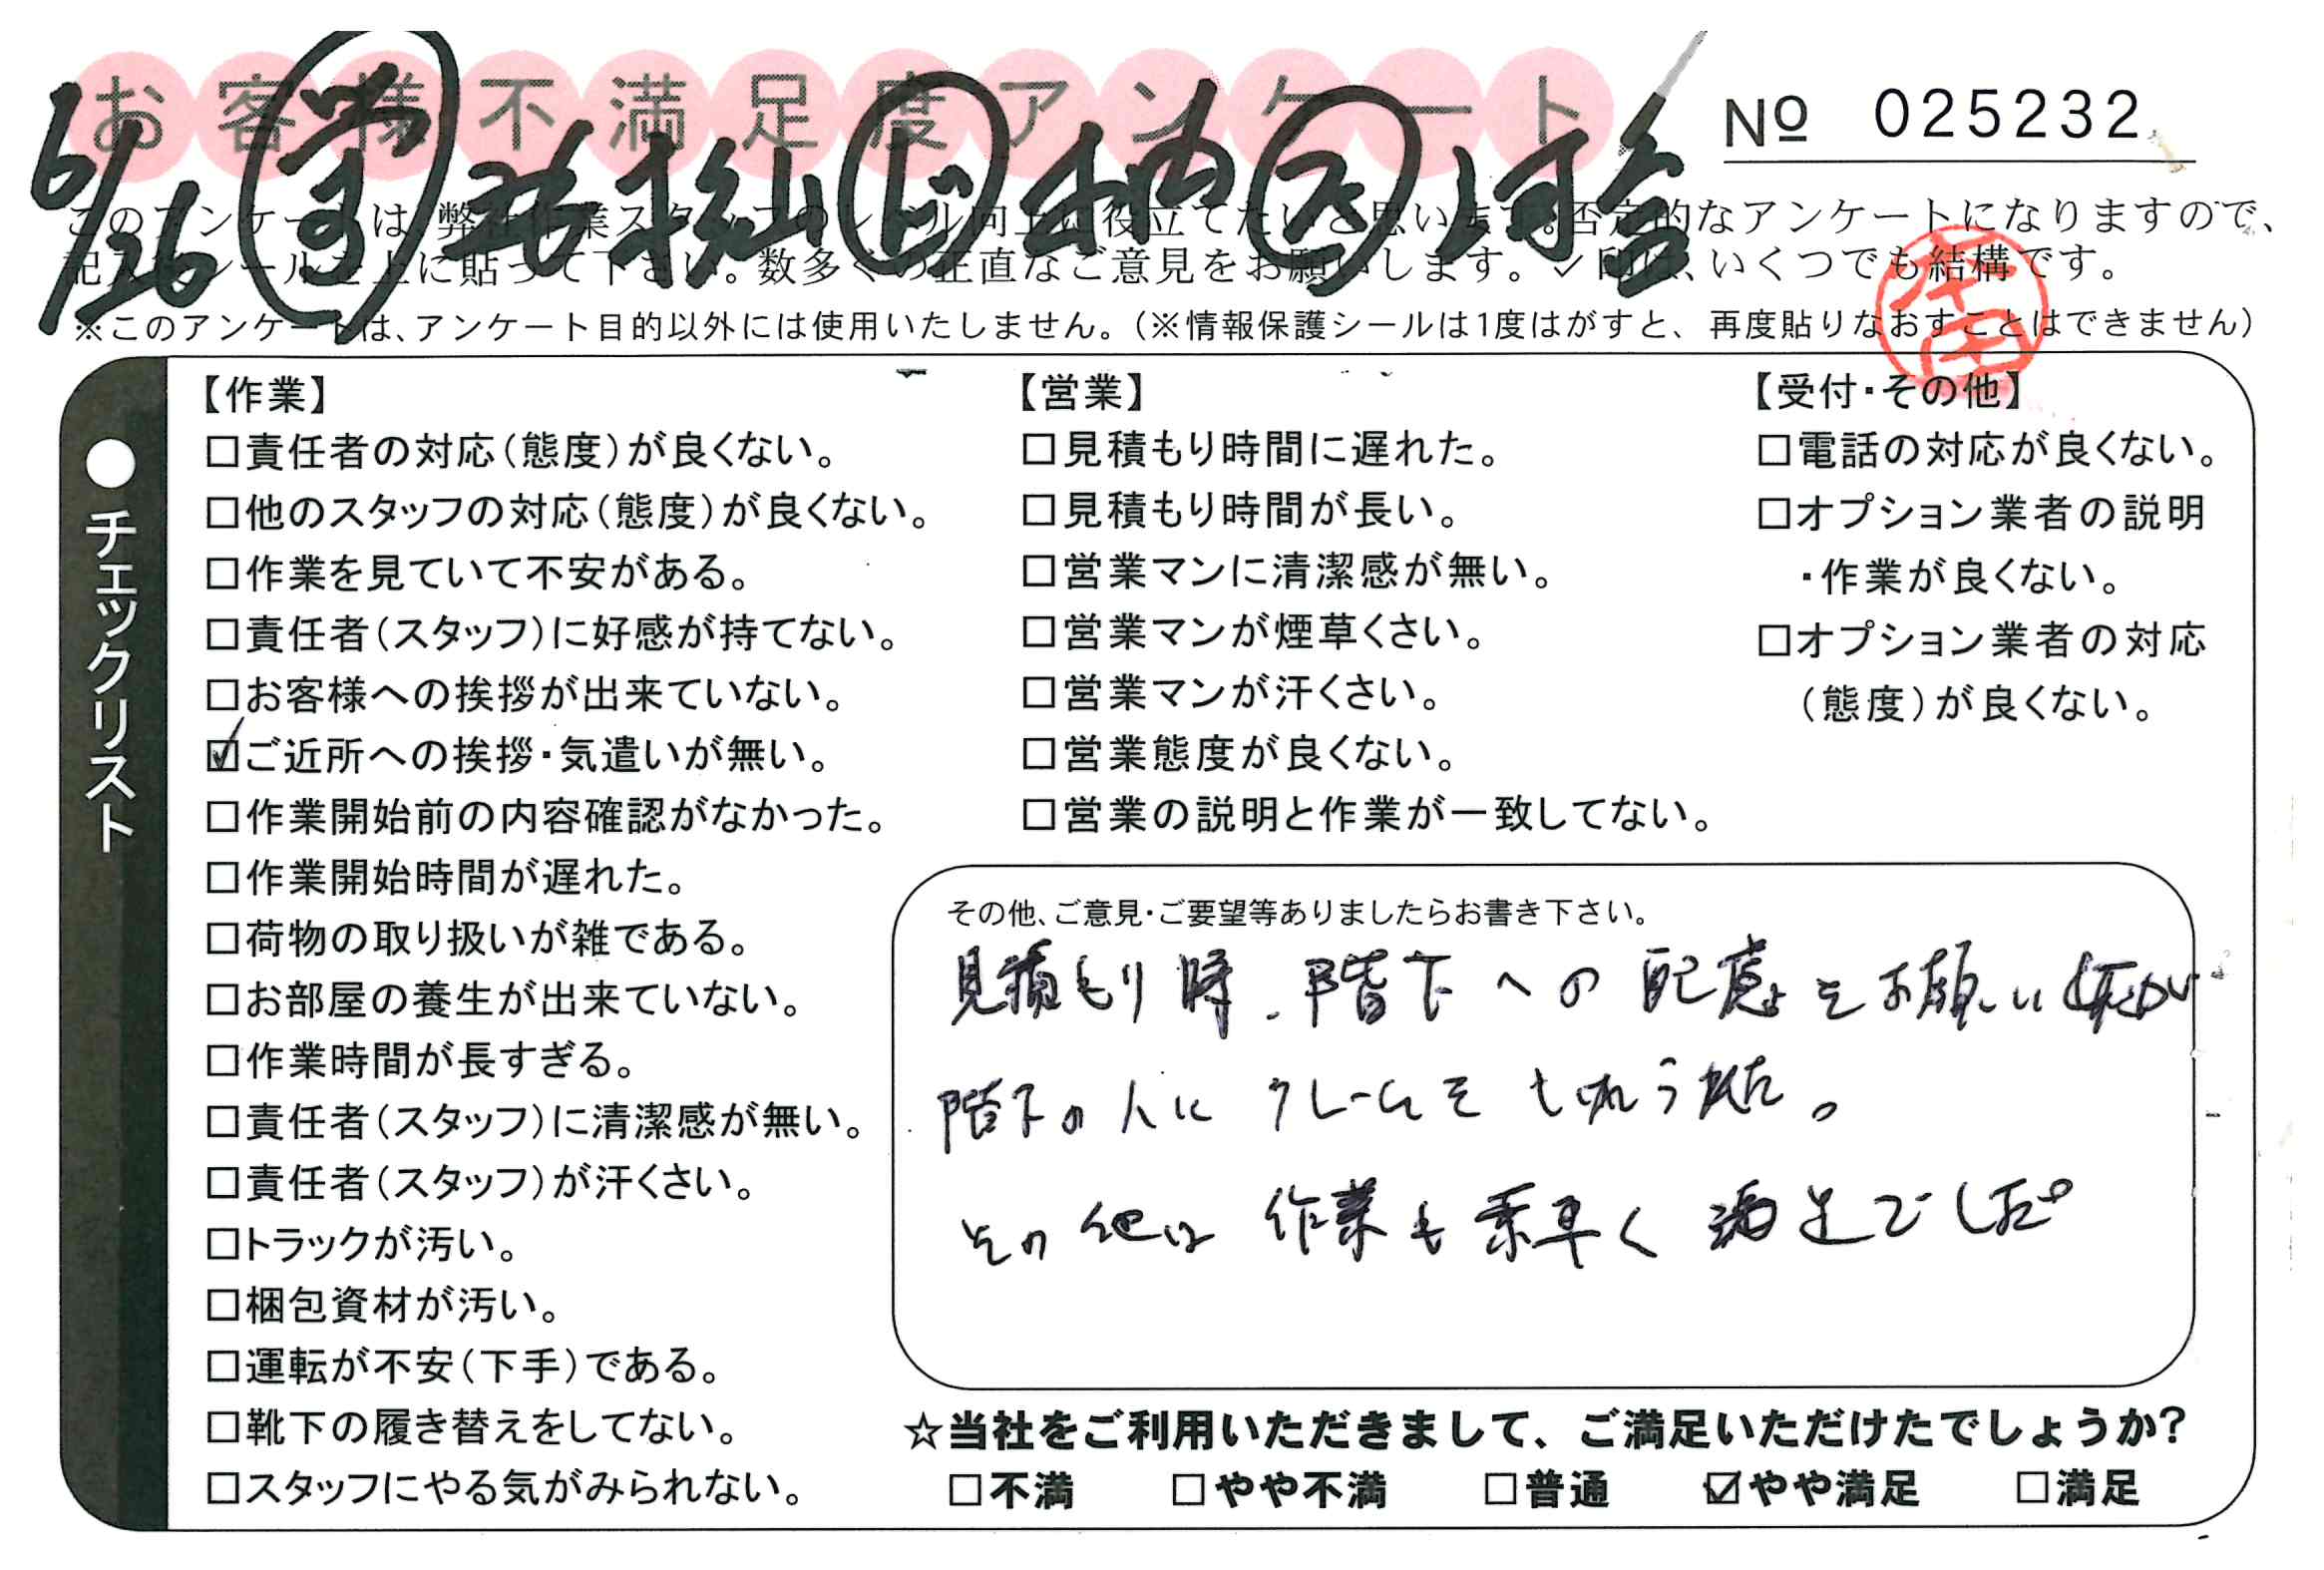 お客様不満足度アンケート
Nº 025232
6/26
このアンケートは、弊社作業スタッフのレベル向上に役立てたいと思います。否定的なアンケートになりますので、
記入後シールを上に貼って下さい。数多くの正直なご意見をお願いします。✓印は、いくつでも結構です。
※このアンケートは、アンケート目的以外には使用いたしません。(※情報保護シールは1度はがすと、再度貼りなおすことはできません)
●チェックリスト
【作業】
□責任者の対応(態度)が良くない。
□他のスタッフの対応(態度)が良くない。
□作業を見ていて不安がある。
□責任者(スタッフ)に好感が持てない。
□お客様への挨拶が出来ていない。
☑ご近所への挨拶・気遣いが無い。
□作業開始前の内容確認がなかった。
□作業開始時間が遅れた。
□荷物の取り扱いが雑である。
□お部屋の養生が出来ていない。
□作業時間が長すぎる。
□責任者(スタッフ)に清潔感が無い。
□責任者(スタッフ)が汗くさい。
□トラックが汚い。
□梱包資材が汚い。
□運転が不安(下手)である。
□靴下の履き替えをしてない。
□スタッフにやる気がみられない。
【営業】
□見積もり時間に遅れた。
□見積もり時間が長い。
□営業マンに清潔感が無い。
□営業マンが煙草くさい。
□営業マンが汗くさい。
□営業態度が良くない。
□営業の説明と作業が一致してない。
【受付・その他】
□電話の対応が良くない。
□オプション業者の説明
・作業が良くない。
□オプション業者の対応
(態度)が良くない。
その他、ご意見・ご要望等ありましたらお書き下さい。
見積もり時、階下への配慮をお願いしたが
階下の人にクレームを
その他は作業も素早く満足でした。
☆当社をご利用いただきまして、ご満足いただけたでしょうか?
□不満 □やや不満 □普通 ☑やや満足 □満足